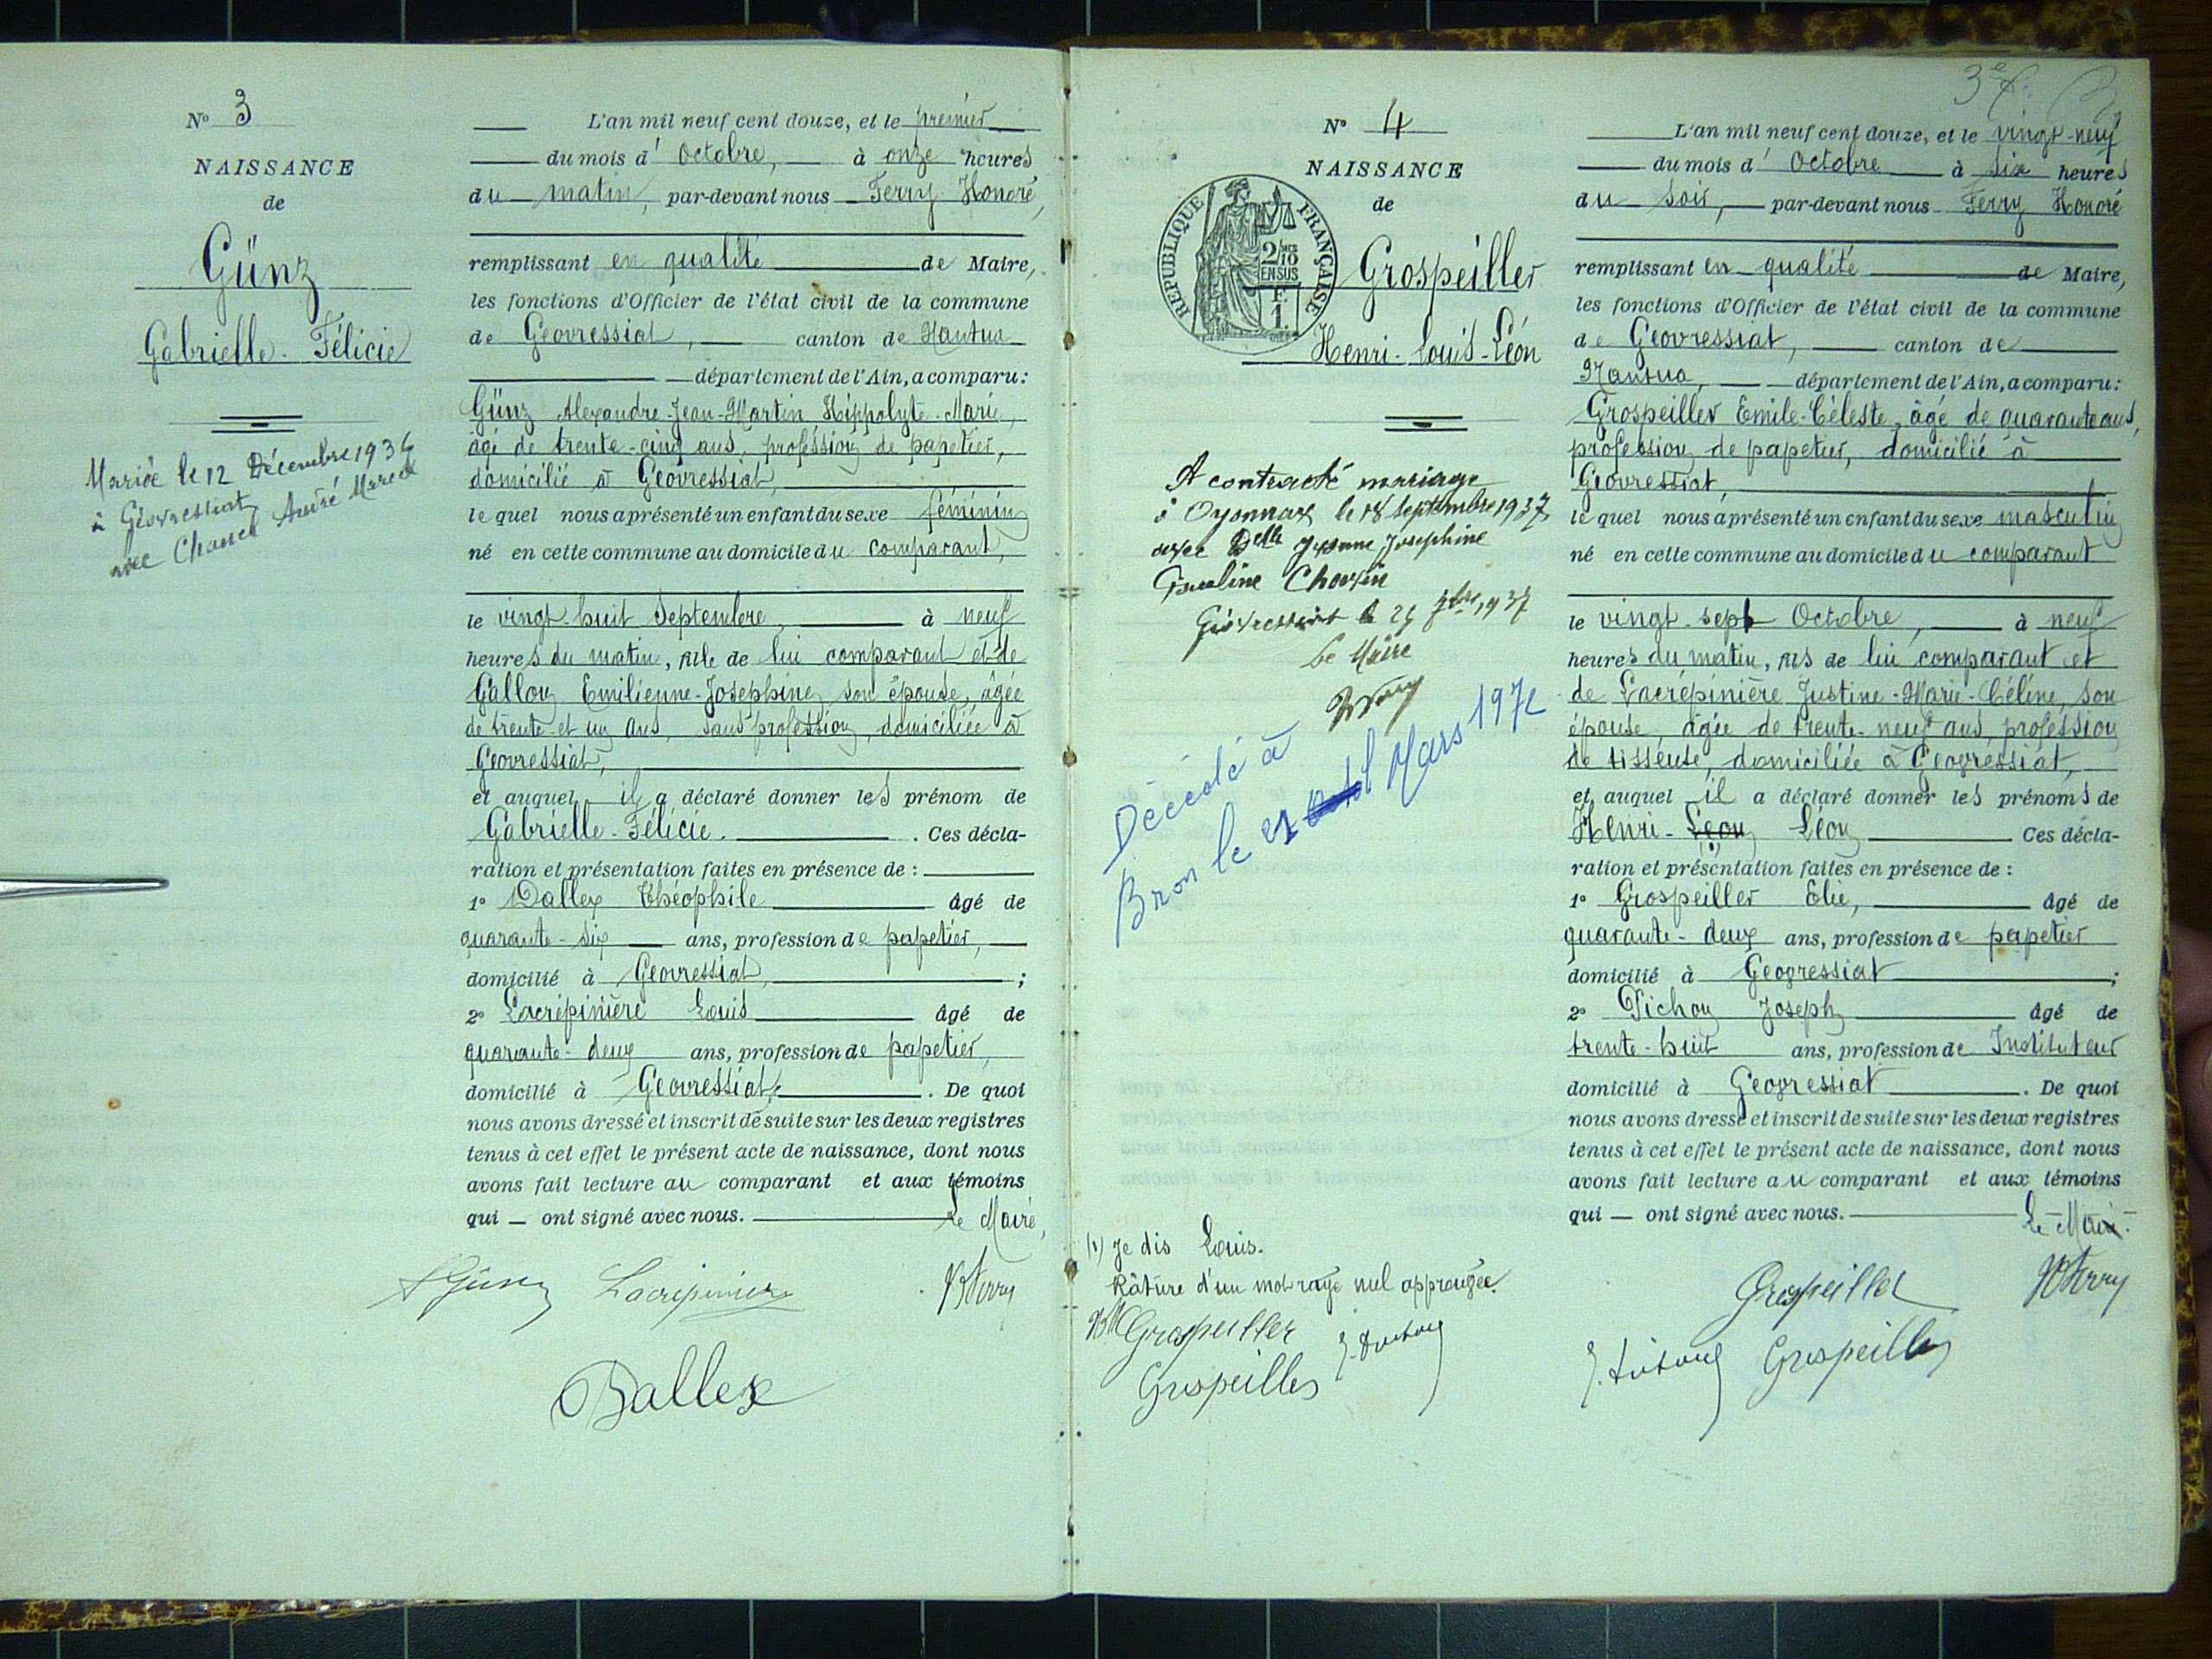 N° 3
NAISSANCE
de
Günz
Gabrielle-Félicie
Mariée le 12 Décembre 1936
à Géovressiat
avec Chanel André Marcel
L'an mil neuf cent douze, et le premier
du mois d'Octobre, à onze heures
du matin, par-devant nous Ferry Honoré,
remplissant en qualité de Maire,
les fonctions d'Officier de l'état civil de la commune
de Geovressiat, canton de Nantua
département de l'Ain, a comparu:
Günz Alexandre-Jean-Martin Hippolyte-Marie,
âgé de trente-cinq ans, profession de papetier,
domicilié à Géovressiat,
lequel nous a présenté un enfant du sexe féminin
né en cette commune au domicile du comparant,
le vingt-huit Septembre, à neuf
heures du matin, fille de lui comparant et de
Galloy Emilienne-Josephine, son épouse, âgée
de trente et un ans, sans profession, domiciliée à
Géovressiat,
et auquel il a déclaré donner les prénom de
Gabrielle-Félicie. Ces décla-
ration et présentation faites en présence de :
1° Dallex Théophile âgé de
quarante-six ans, profession de papetier,
domicilié à Geovressiat, ;
2° Lacrépinière Louis âgé de
quarante-deux ans, profession de papetier,
domicilié à Geovressiat. De quoi
nous avons dressé et inscrit de suite sur les deux registres
tenus à cet effet le présent acte de naissance, dont nous
avons fait lecture au comparant et aux témoins
qui — ont signé avec nous. Le Maire,
A Günz Lacrépinière Hferry
Dallex
3e f.
N° 4
NAISSANCE
de
RÉPUBLIQUE FRANÇAISE
2/10 EN SUS
F. 1.
Grospeiller
Henri-Louis-Léon
A contracté mariage
à Oyonnax le 18 septembre 1937
avec Delle Yvonne Josephine
Pauline
Géovressiat le 1937
Le Maire
Décédé à
Bron le 21 Mars 1972
(1) Je dis Louis.
Râture d'un mot rayé nul approuvée.
Grospeiller
Grospeiller
L'an mil neuf cent douze, et le vingt-neuf
du mois d'Octobre à six heures
du soir, par-devant nous Ferry Honoré
remplissant en qualité de Maire,
les fonctions d'Officier de l'état civil de la commune
de Geovressiat, canton de
Nantua, département de l'Ain, a comparu:
Grospeiller Emile-Céleste, âgé de quarante ans,
profession de papetier, domicilié à
Géovressiat,
lequel nous a présenté un enfant du sexe masculin
né en cette commune au domicile du comparant
le vingt-sept Octobre, à neuf
heures du matin, fils de lui comparant et
de Lacrépinière Justine-Marie-Céline, son
épouse, âgée de trente-neuf ans, profession
de tisseuse, domiciliée à Geovressiat,
et auquel il a déclaré donner les prénoms de
Henri-Léon Léon Ces décla-
ration et présentation faites en présence de :
1° Grospeiller Elie, âgé de
quarante-deux ans, profession de papetier
domicilié à Geovressiat ;
2° Pichoy Joseph âgé de
trente-huit ans, profession de Instituteur
domicilié à Geovressiat. De quoi
nous avons dressé et inscrit de suite sur les deux registres
tenus à cet effet le présent acte de naissance, dont nous
avons fait lecture au comparant et aux témoins
qui — ont signé avec nous. Le Maire.
Grospeiller Hferry
Grospeiller